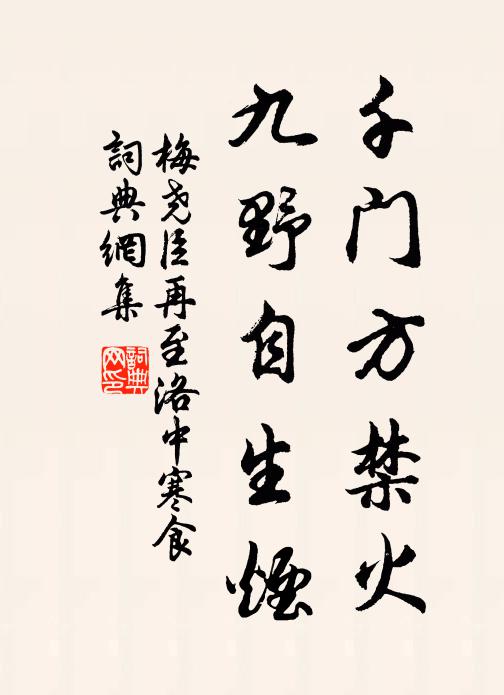 千门方禁火
九野自生烟
梅尧臣再至洛中寒食
詞典網集
詞典网印